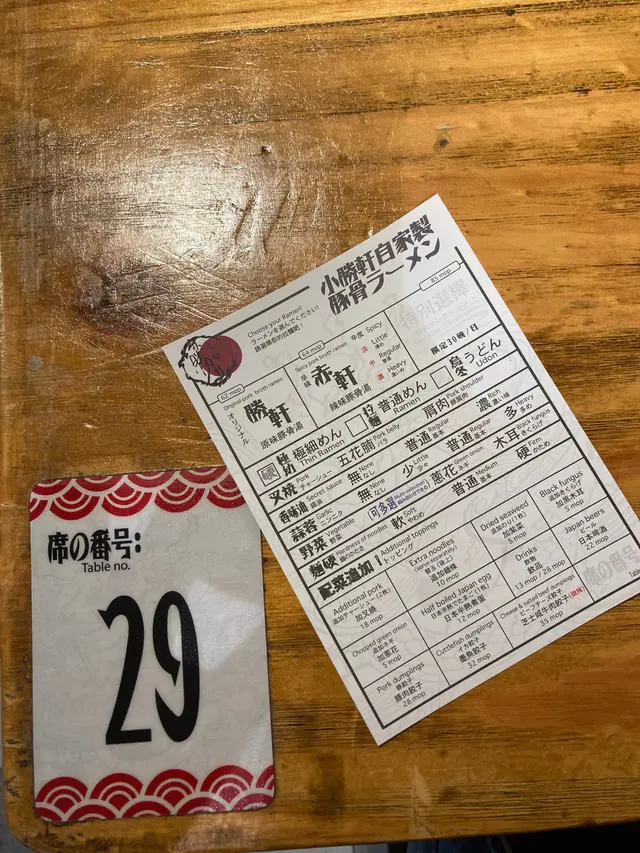 小勝軒自家製
豚骨ラーメン
Choose your Ramen!
ラーメンを選んでください!
請選擇你的拉麵吧!
62 mop
Original pork broth ramen
オリジナル
勝軒
原味豚骨湯
64 mop
Spicy pork broth ramen
辛味
赤軒
辣味豚骨湯
辛度 Spicy
Little
Regular
Heavy
85 mop
限定30碗/日
極細めん
Thin Ramen
拉麵
普通めん
Ramen
烏冬
うどん
Udon
叉燒
Pork
チャーシュー
五花腩
Pork belly
バラ
肩肉
Pork shoulder
香味油
Secret sauce
無 None なし
普通 Regular 基本
濃 Rich 濃い味
蒜蓉
Garlic
ニンニク
無 None なし
少 Little 少々
普通 Regular 基本
多 Heavy 多め
野菜
Vegetable
野菜
可多選
葱花
Green onion
ネギ
木耳
Black fungus
きくらげ
麵硬
Hardness of noodles
麺のかたさ
軟 Soft やわめ
普通 Medium 基本
硬 Firm かため
配菜追加!
Additional toppings
トッピング
Additional pork
追加チャーシュー (2枚)
加叉燒
18 mop
Extra noodles
(served separately)
替玉 (後上)
追加麵條
10 mop
Dried seaweed
追加のり (1枚)
加紫菜
5 mop
Black fungus
追加きくらげ
加黑木耳
5 mop
Chopped green onion
追加ネギ
加葱花
5 mop
Half boiled Japan egg
日本半熟煮蛋
12 mop
Drinks
飲物
飲品
13 mop / 26 mop
Japan beers
ビール
日本啤酒
22 mop
Pork dumplings
豚餃子
豚肉餃子
28 mop
Cuttlefish dumplings
イカ餃子
墨魚餃子
32 mop
Cheese & salted beef dumplings
ビーフチーズ餃子
芝士咸牛肉餃子
35 mop
席の番号:
Table no.
29